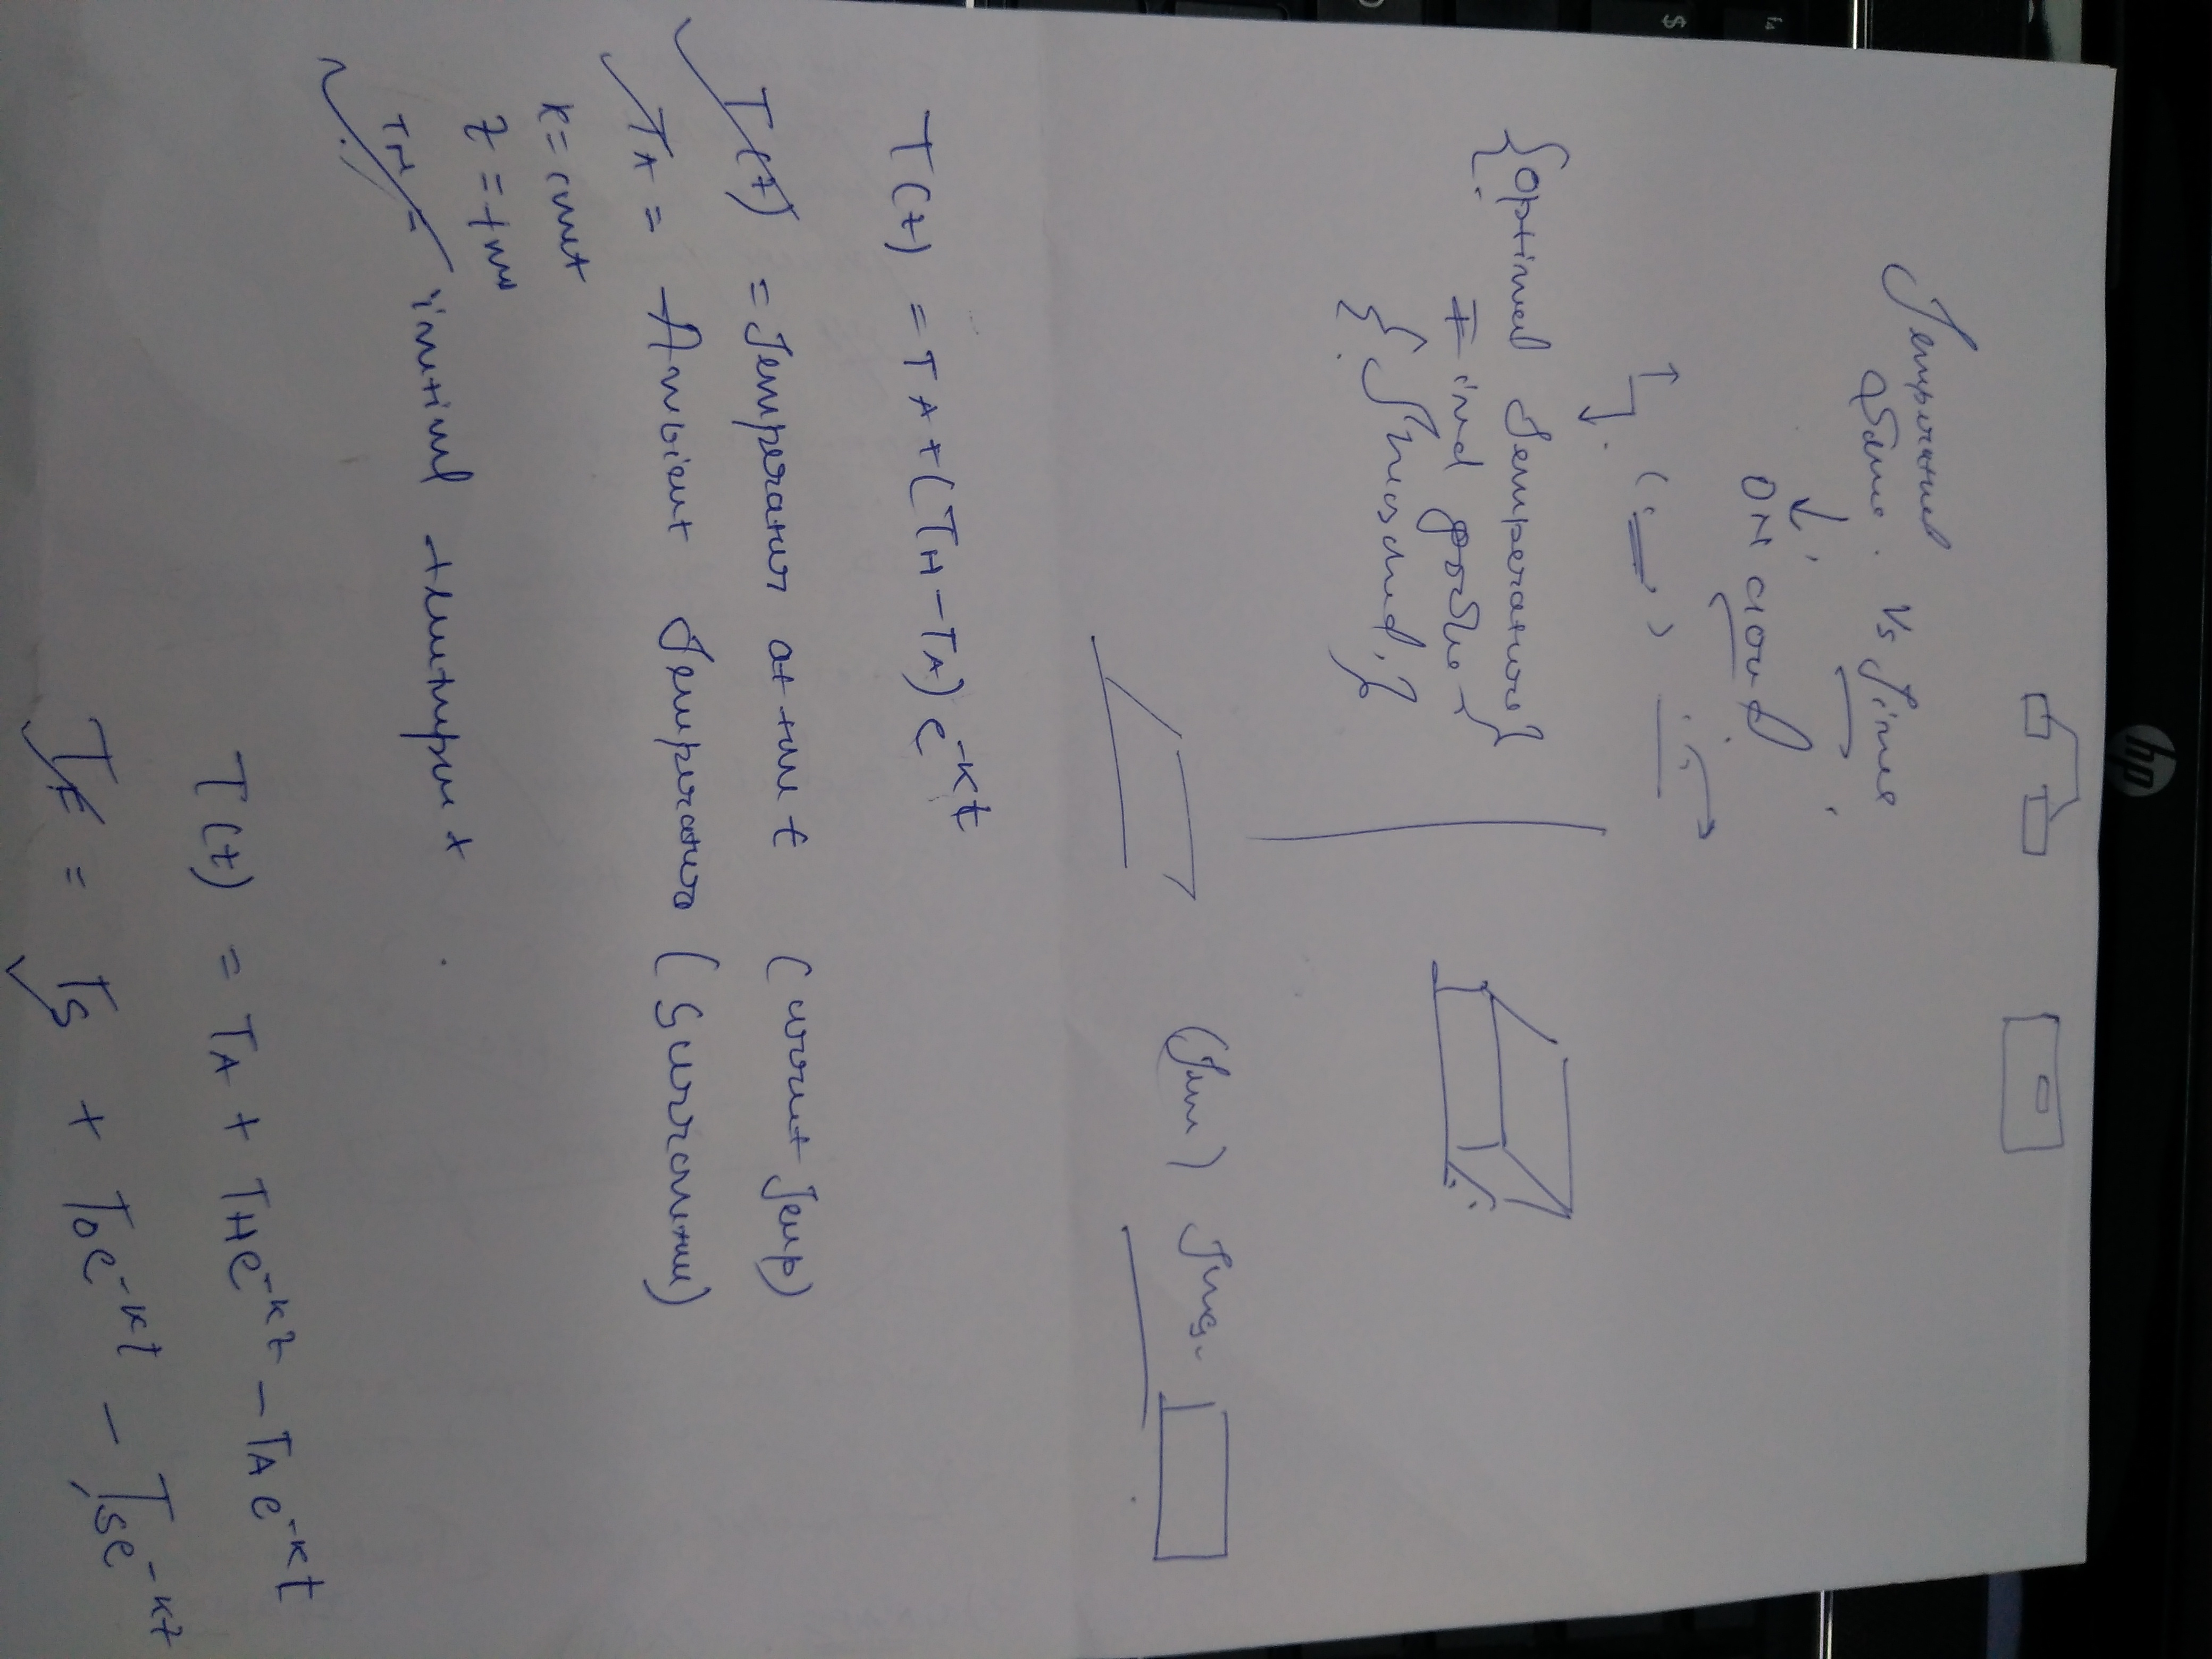 hp
Temperature Vs Time
Same.
ON cloud
{optimal Temperature}
find gostre }
T(t) = TA + (TH - TA) e^-kt
T(t) = Temperatur at tim t (current Temp)
TA = Ambient Temperature (Surrounding)
K = const
t = time
TH = initial
T(t) = TA + THe^-kt - TA e^-kt
= TS + Toe^-kt - TSe^-kt